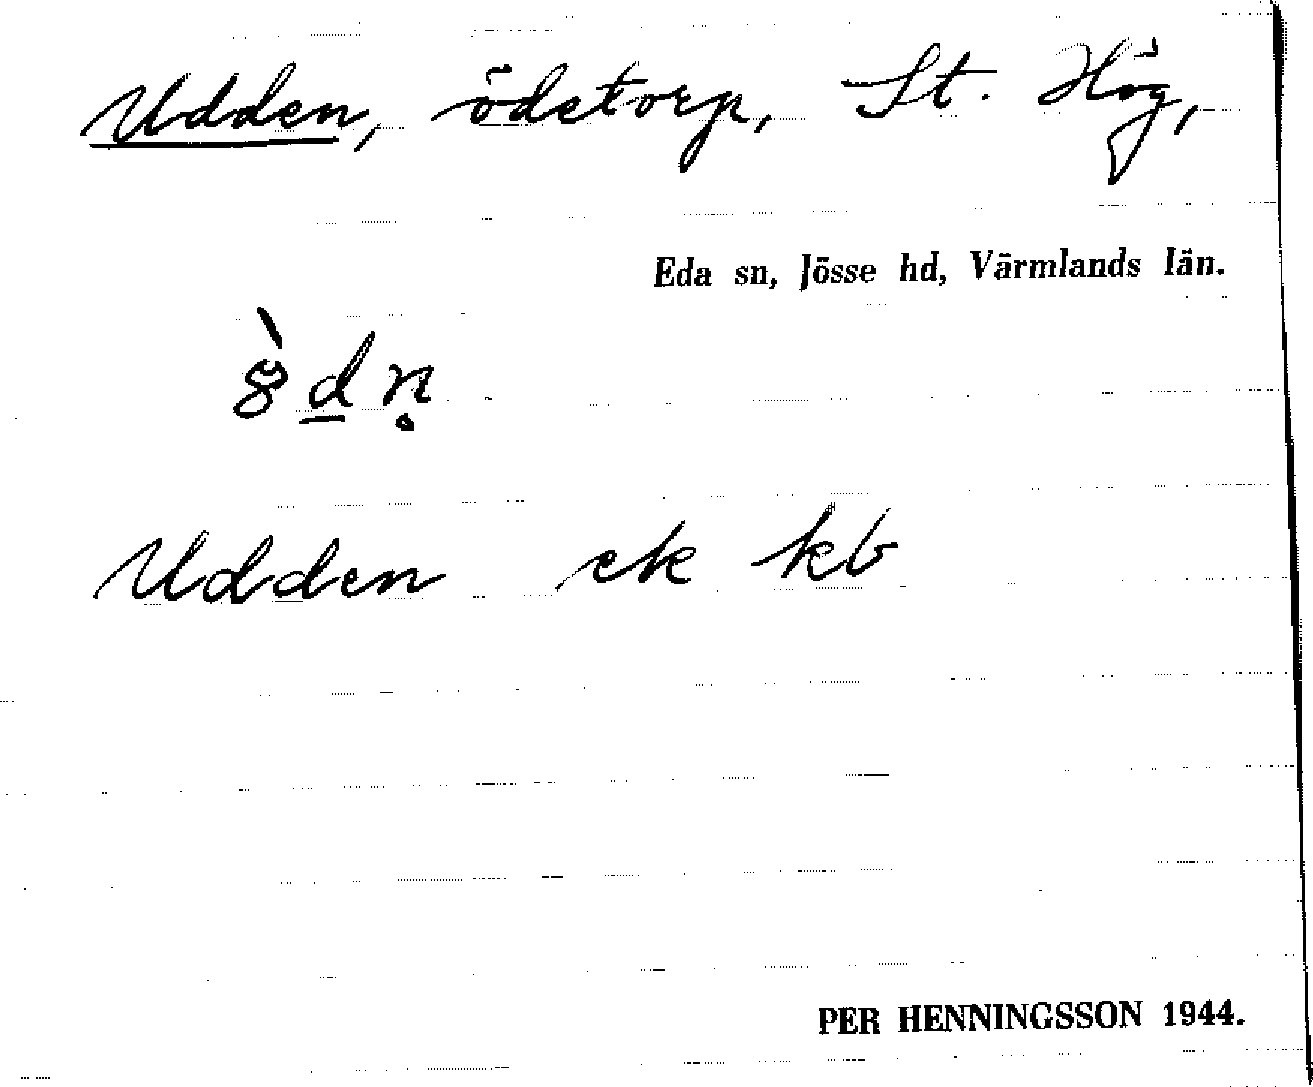 Udden, ödetorp, St. Hög,
Eda sn, Jösse hd, Värmlands län.
Udden ek kb
PER HENNINGSSON 1944.